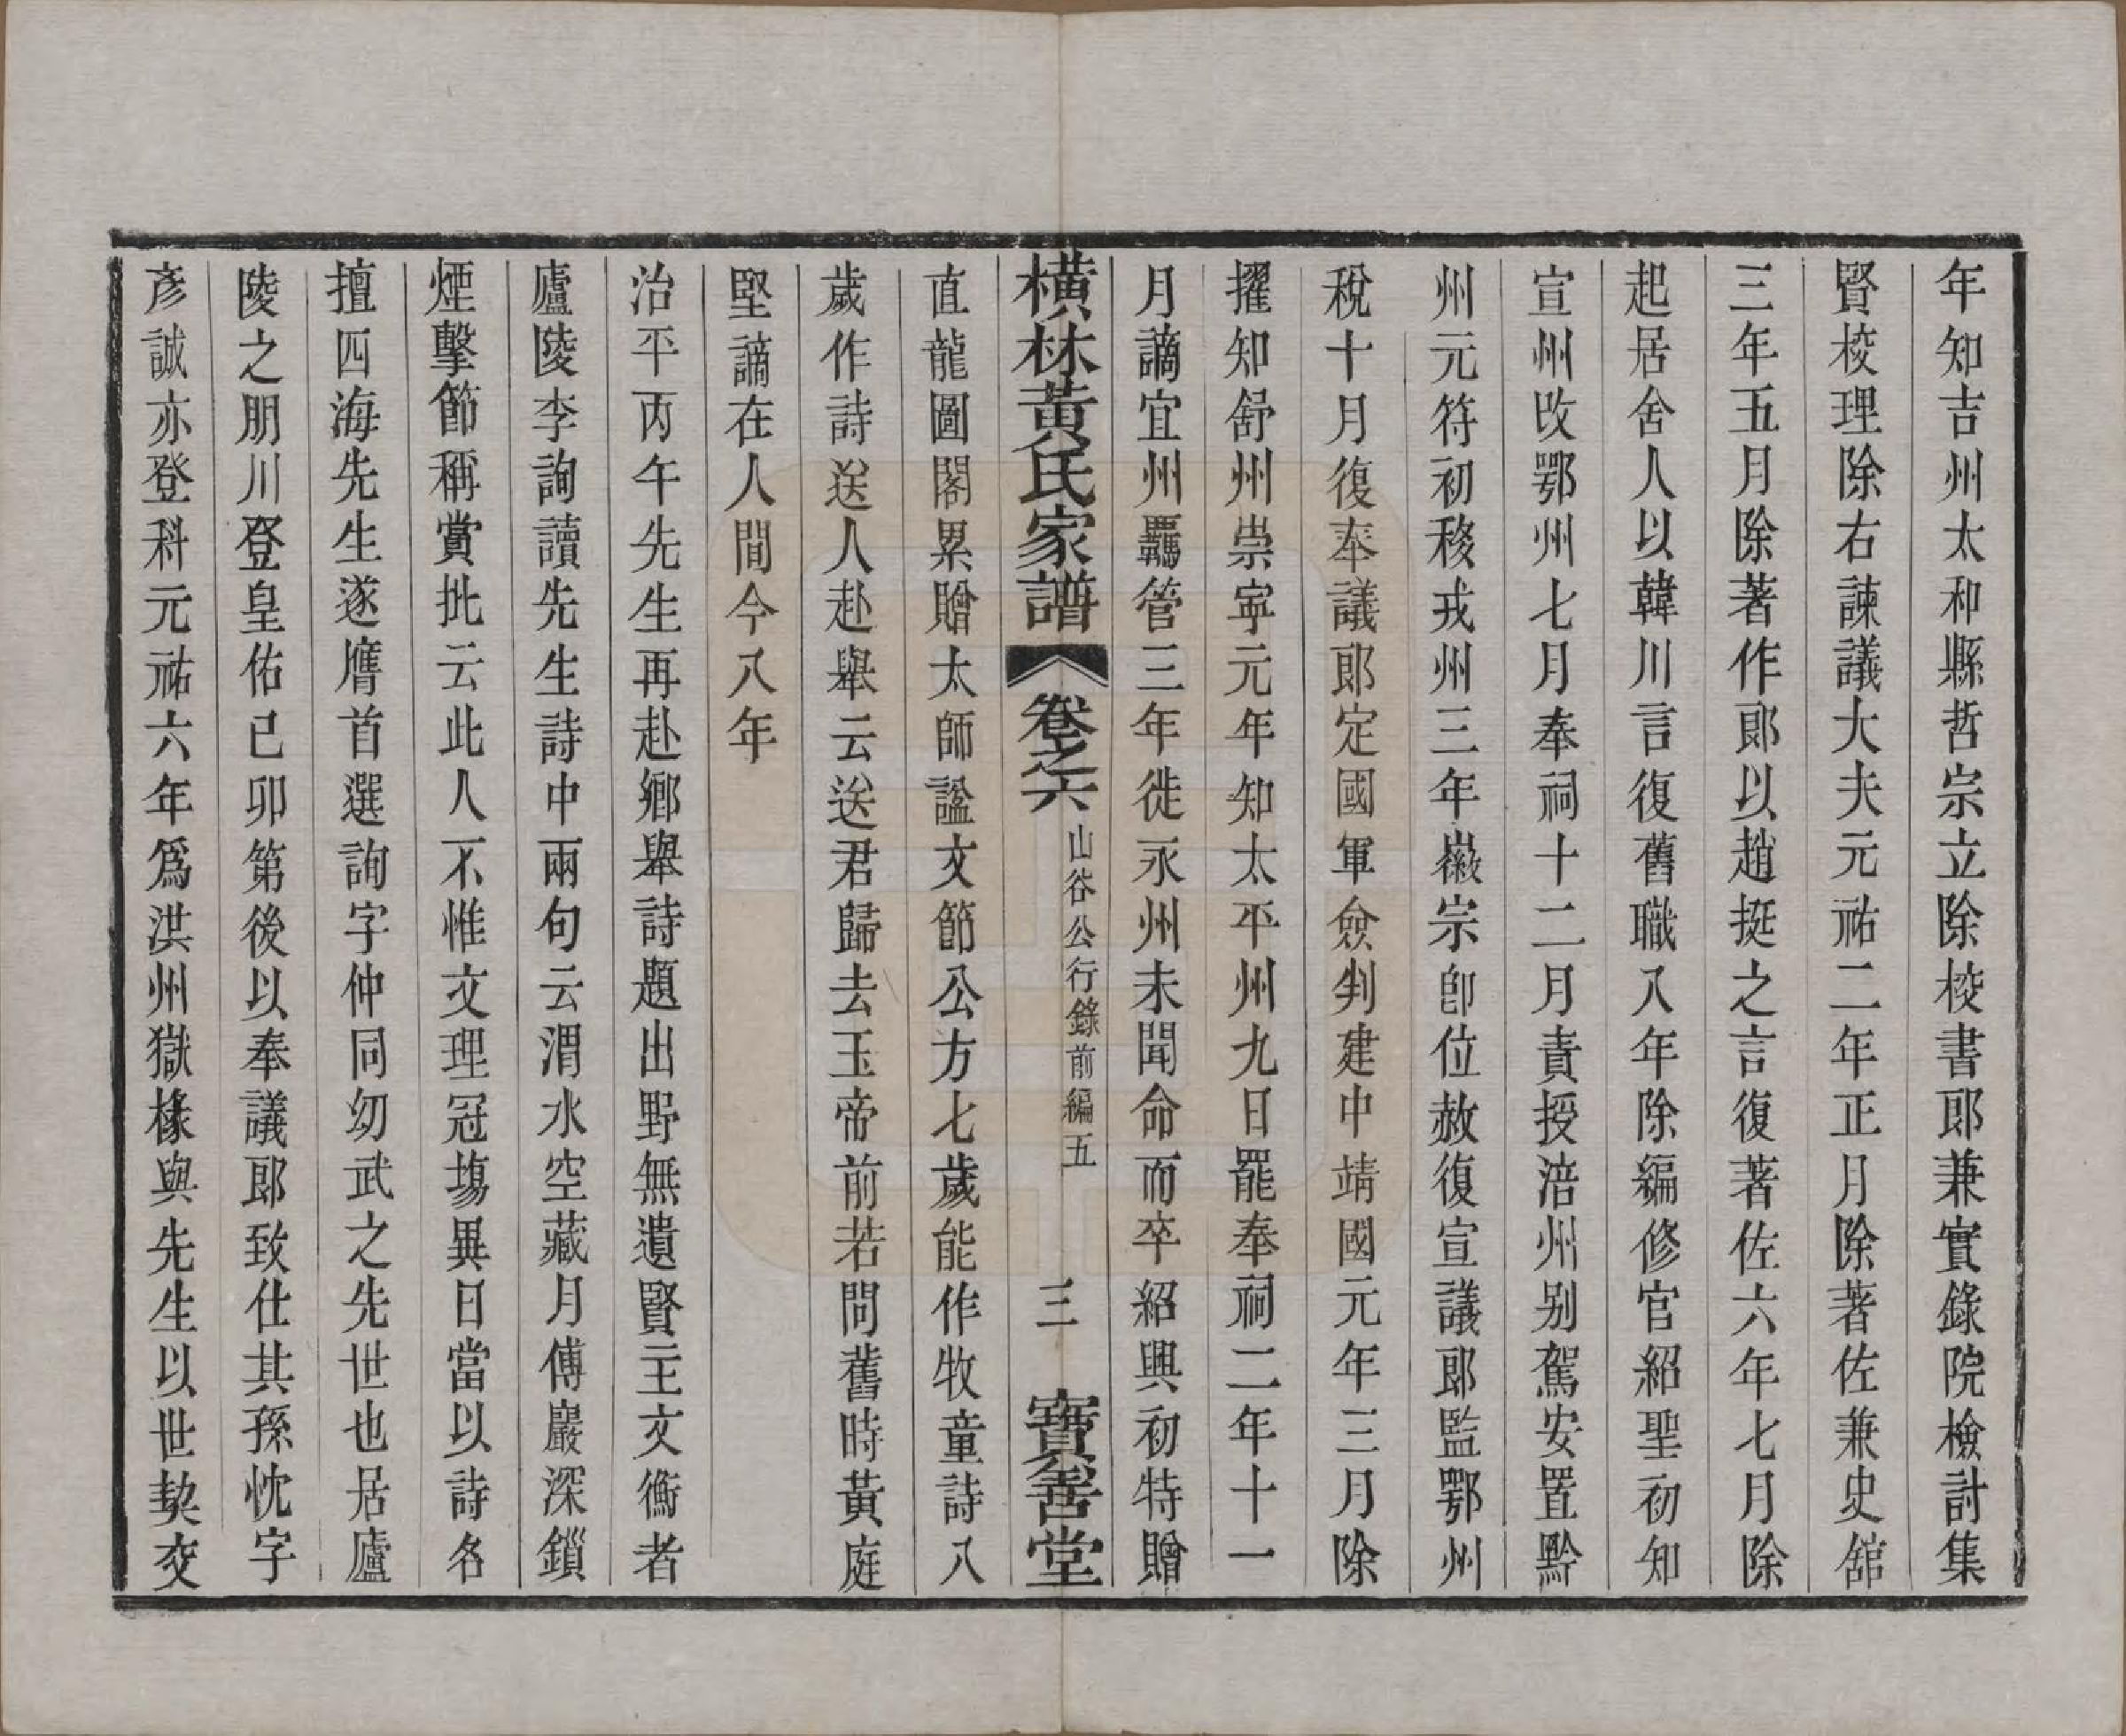 年知吉州太和縣哲宗立除校書郎兼實錄院檢討集
賢校理除右諫議大夫元祐二年正月除著佐兼史舘
三年五月除著作郎以趙挺之言復著佐六年七月除
起居舍人以韓川言復舊職八年除編修官紹聖初知
宣州改鄂州七月奉祠十二月責授涪州别駕安置黔
州元符初移戎州三年徽宗卽位赦復宣議郎監鄂州
稅十月復奉議郎定國軍僉判建中靖國元年三月除
擢知舒州崇寧元年知太平州九日罷奉祠二年十一
月謫宜州覊管三年徙永州未聞命而卒紹興初特贈
橫林黃氏家譜 卷之六 山谷公行錄前編五 三 寶善堂
直龍圖閣累贈太師諡文節公方七歲能作牧童詩八
歲作詩送人赴舉云送君歸去玉帝前若問舊時黃庭
堅謫在人間今八年
治平丙午先生再赴鄉舉詩題出野無遺賢主文衡者
廬陵李詢讀先生詩中兩句云渭水空藏月傅巖深鎖
煙擊節稱賞批云此人不惟文理冠塲異日當以詩名
擅四海先生遂膺首選詢字仲同幼武之先世也居廬
陵之朋川登皇佑己卯第後以奉議郎致仕其孫忱字
彥誠亦登科元祐六年爲洪州獄椽與先生以世契交